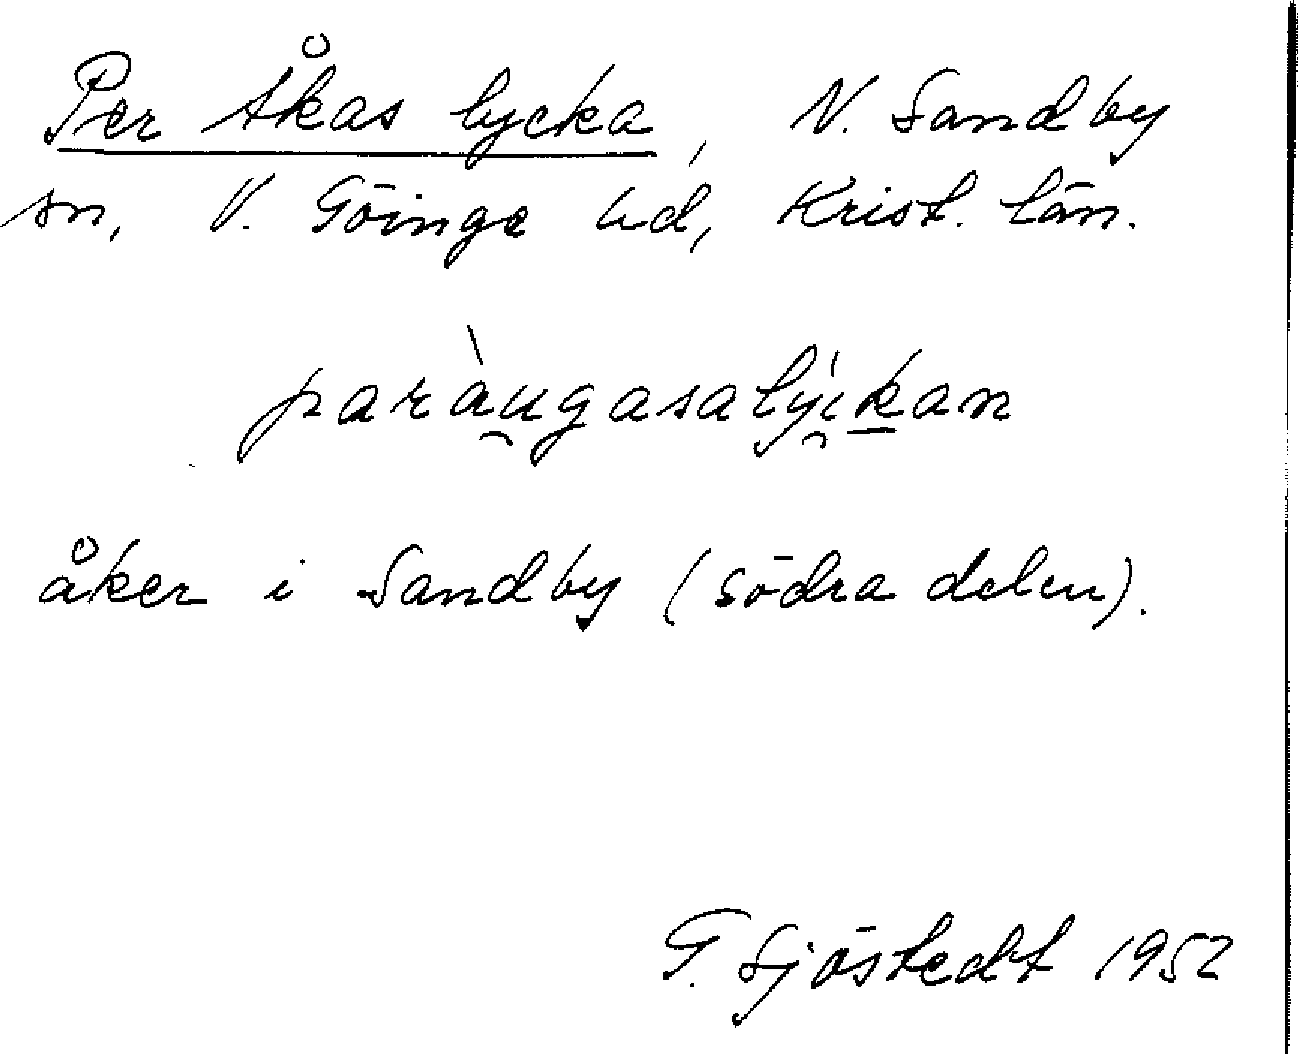 Per Åkas lycka, N. Sandby
sn, V. Göinge hd, Krist. län.
paràu̯gasalýi̯ḵan
åker i Sandby (södra delen).
G. Sjöstedt 1952